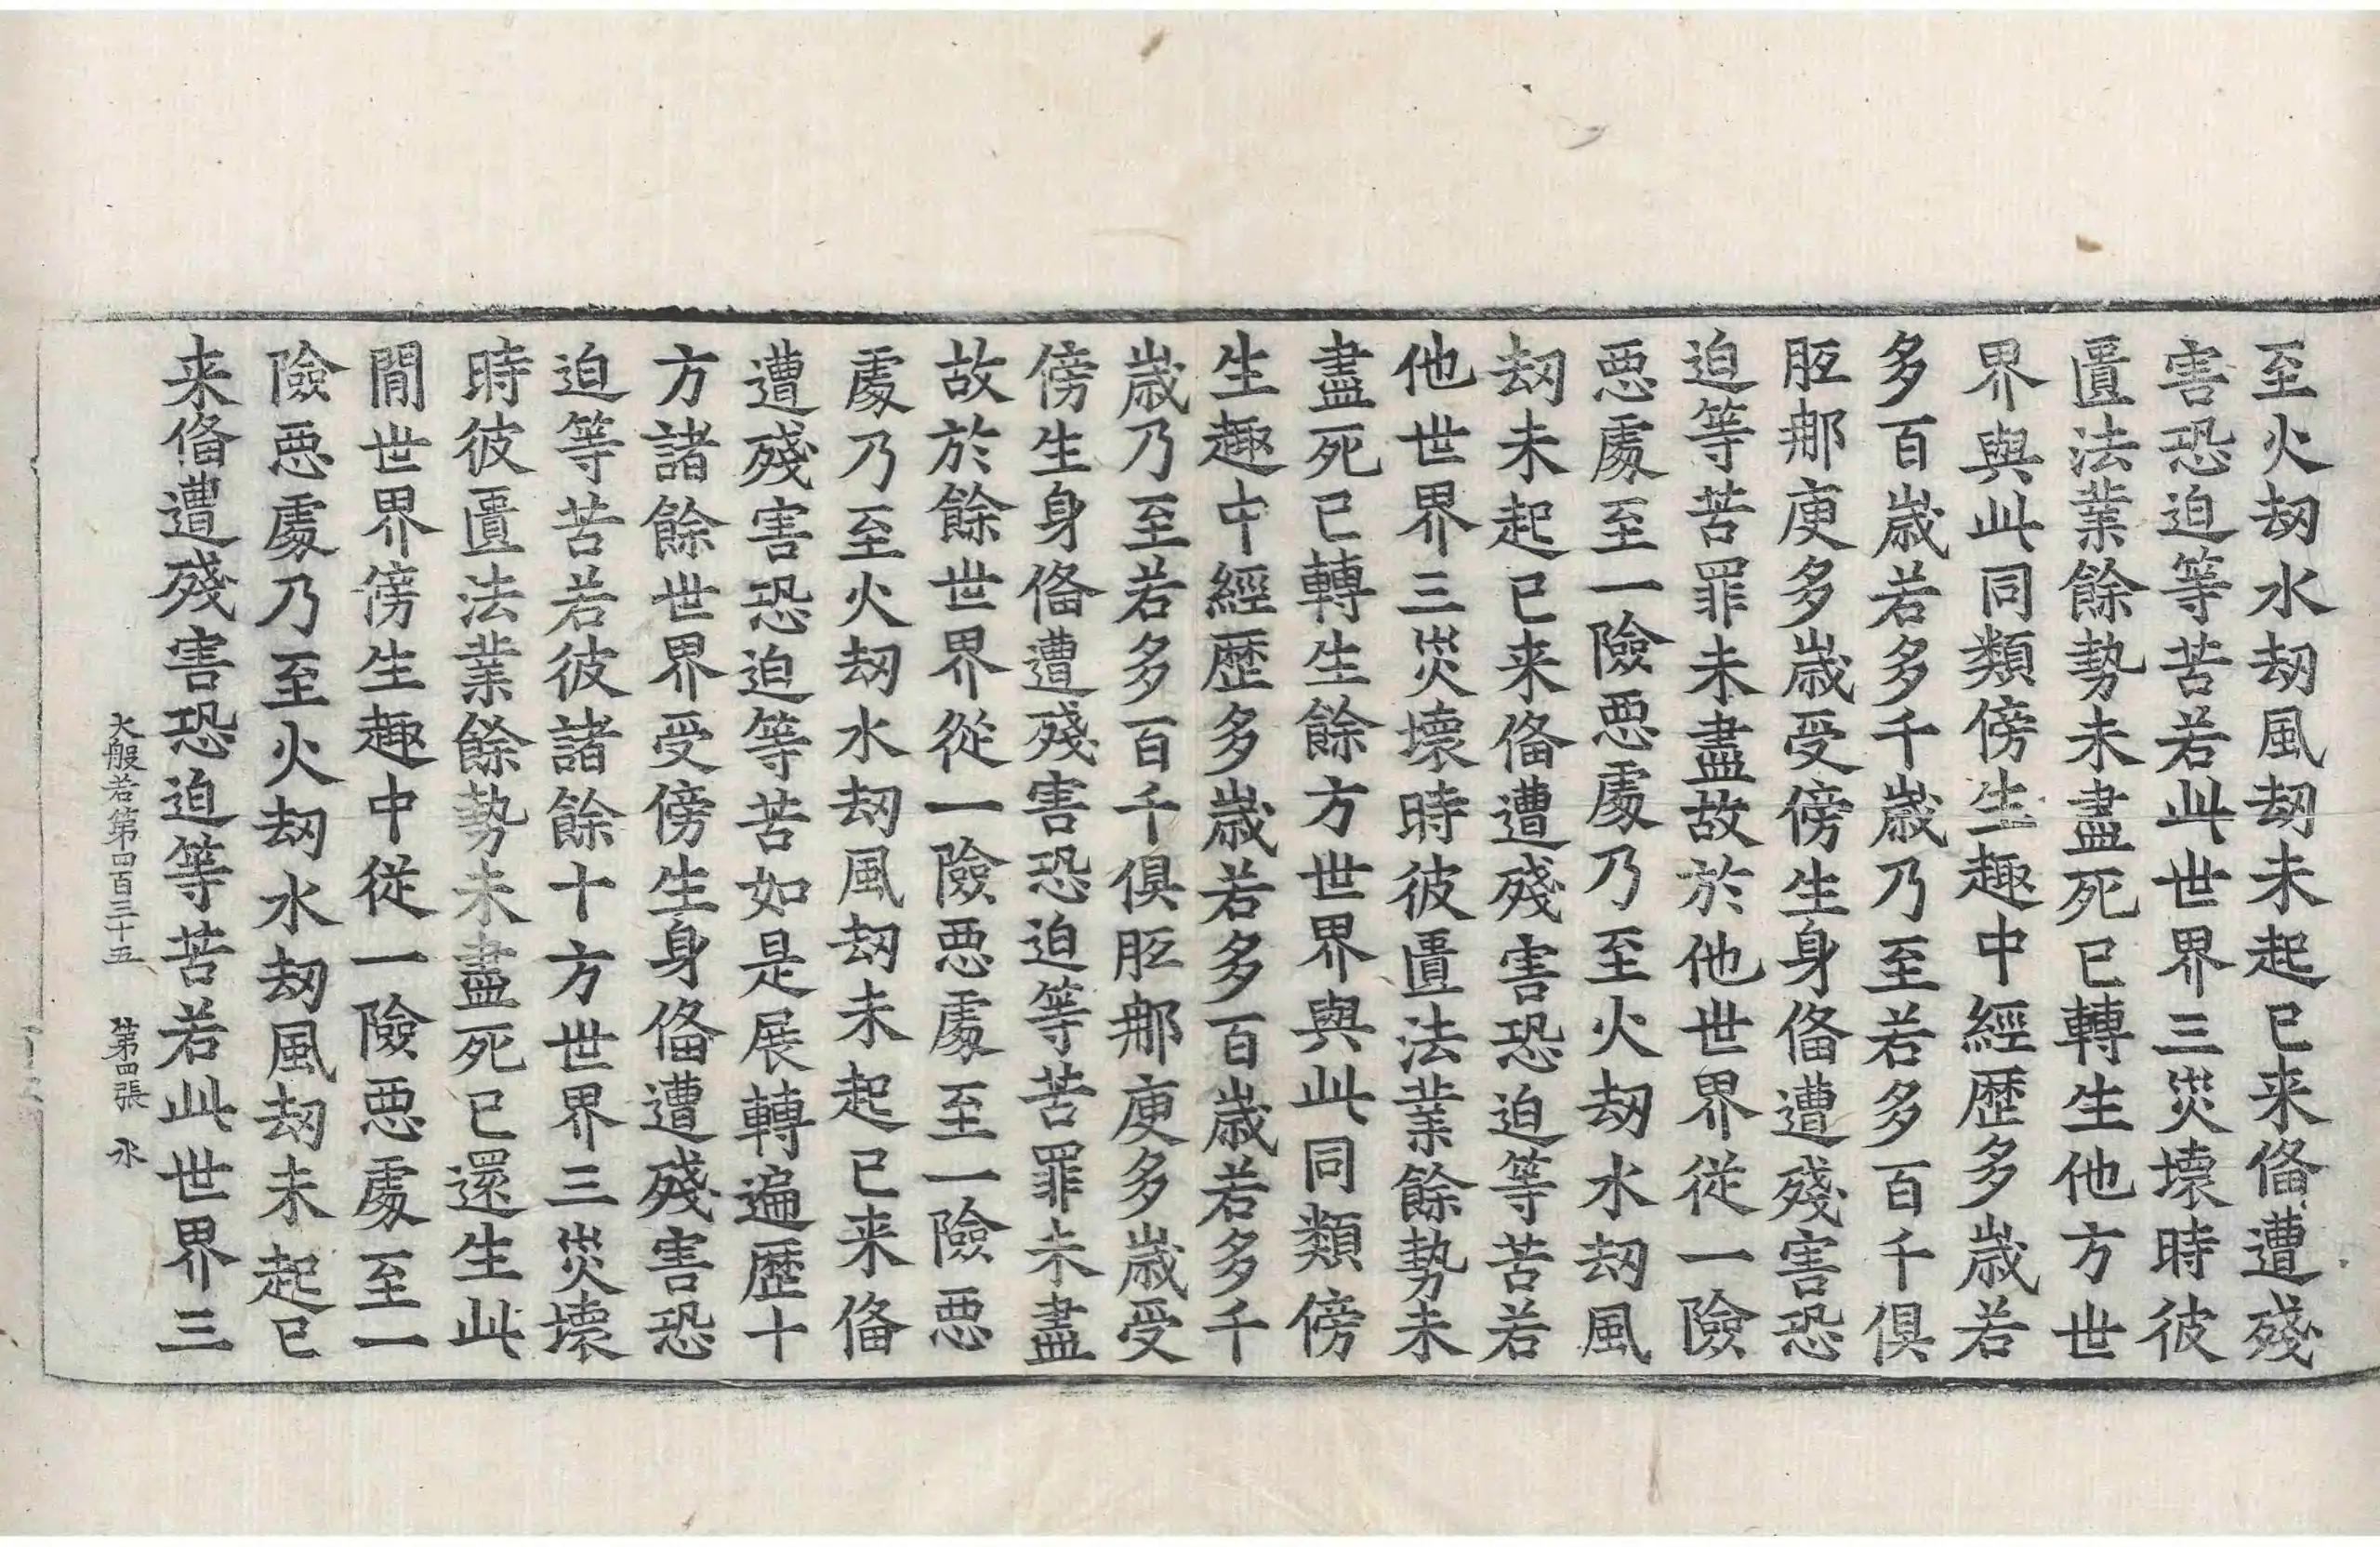 至火刼水刼風刼未起已来俻遭殘
害恐迫等苦若此世界三災壞時彼
匱法業餘勢未盡死已轉生他方世
界與此同類傍生趣中經歷多歲若
多百歲若多千歲乃至若多百千俱
胝那庾多歲受傍生身俻遭殘害恐
迫等苦罪未盡故於他世界從一險
惡處至一險惡處乃至火刼水刼風
刼未起已来俻遭殘害恐迫等苦若
他世界三災壞時彼匱法業餘勢未
盡死已轉生餘方世界與此同類傍
生趣中經歷多歲若多百歲若多千
歲乃至若多百千俱胝那庾多歲受
傍生身俻遭殘害恐迫等苦罪未盡
故於餘世界從一險惡處至一險惡
處乃至火刼水刼風刼未起已来俻
遭殘害恐迫等苦如是展轉遍歷十
方諸餘世界受傍生身俻遭殘害恐
迫等苦若彼諸餘十方世界三災壞
時彼匱法業餘勢未盡死已還生此
閒世界傍生趣中從一險惡處至一
險惡處乃至火刼水刼風刼未起已
来俻遭殘害恐迫等苦若此世界三
大般若第四百三十五 第四張 水